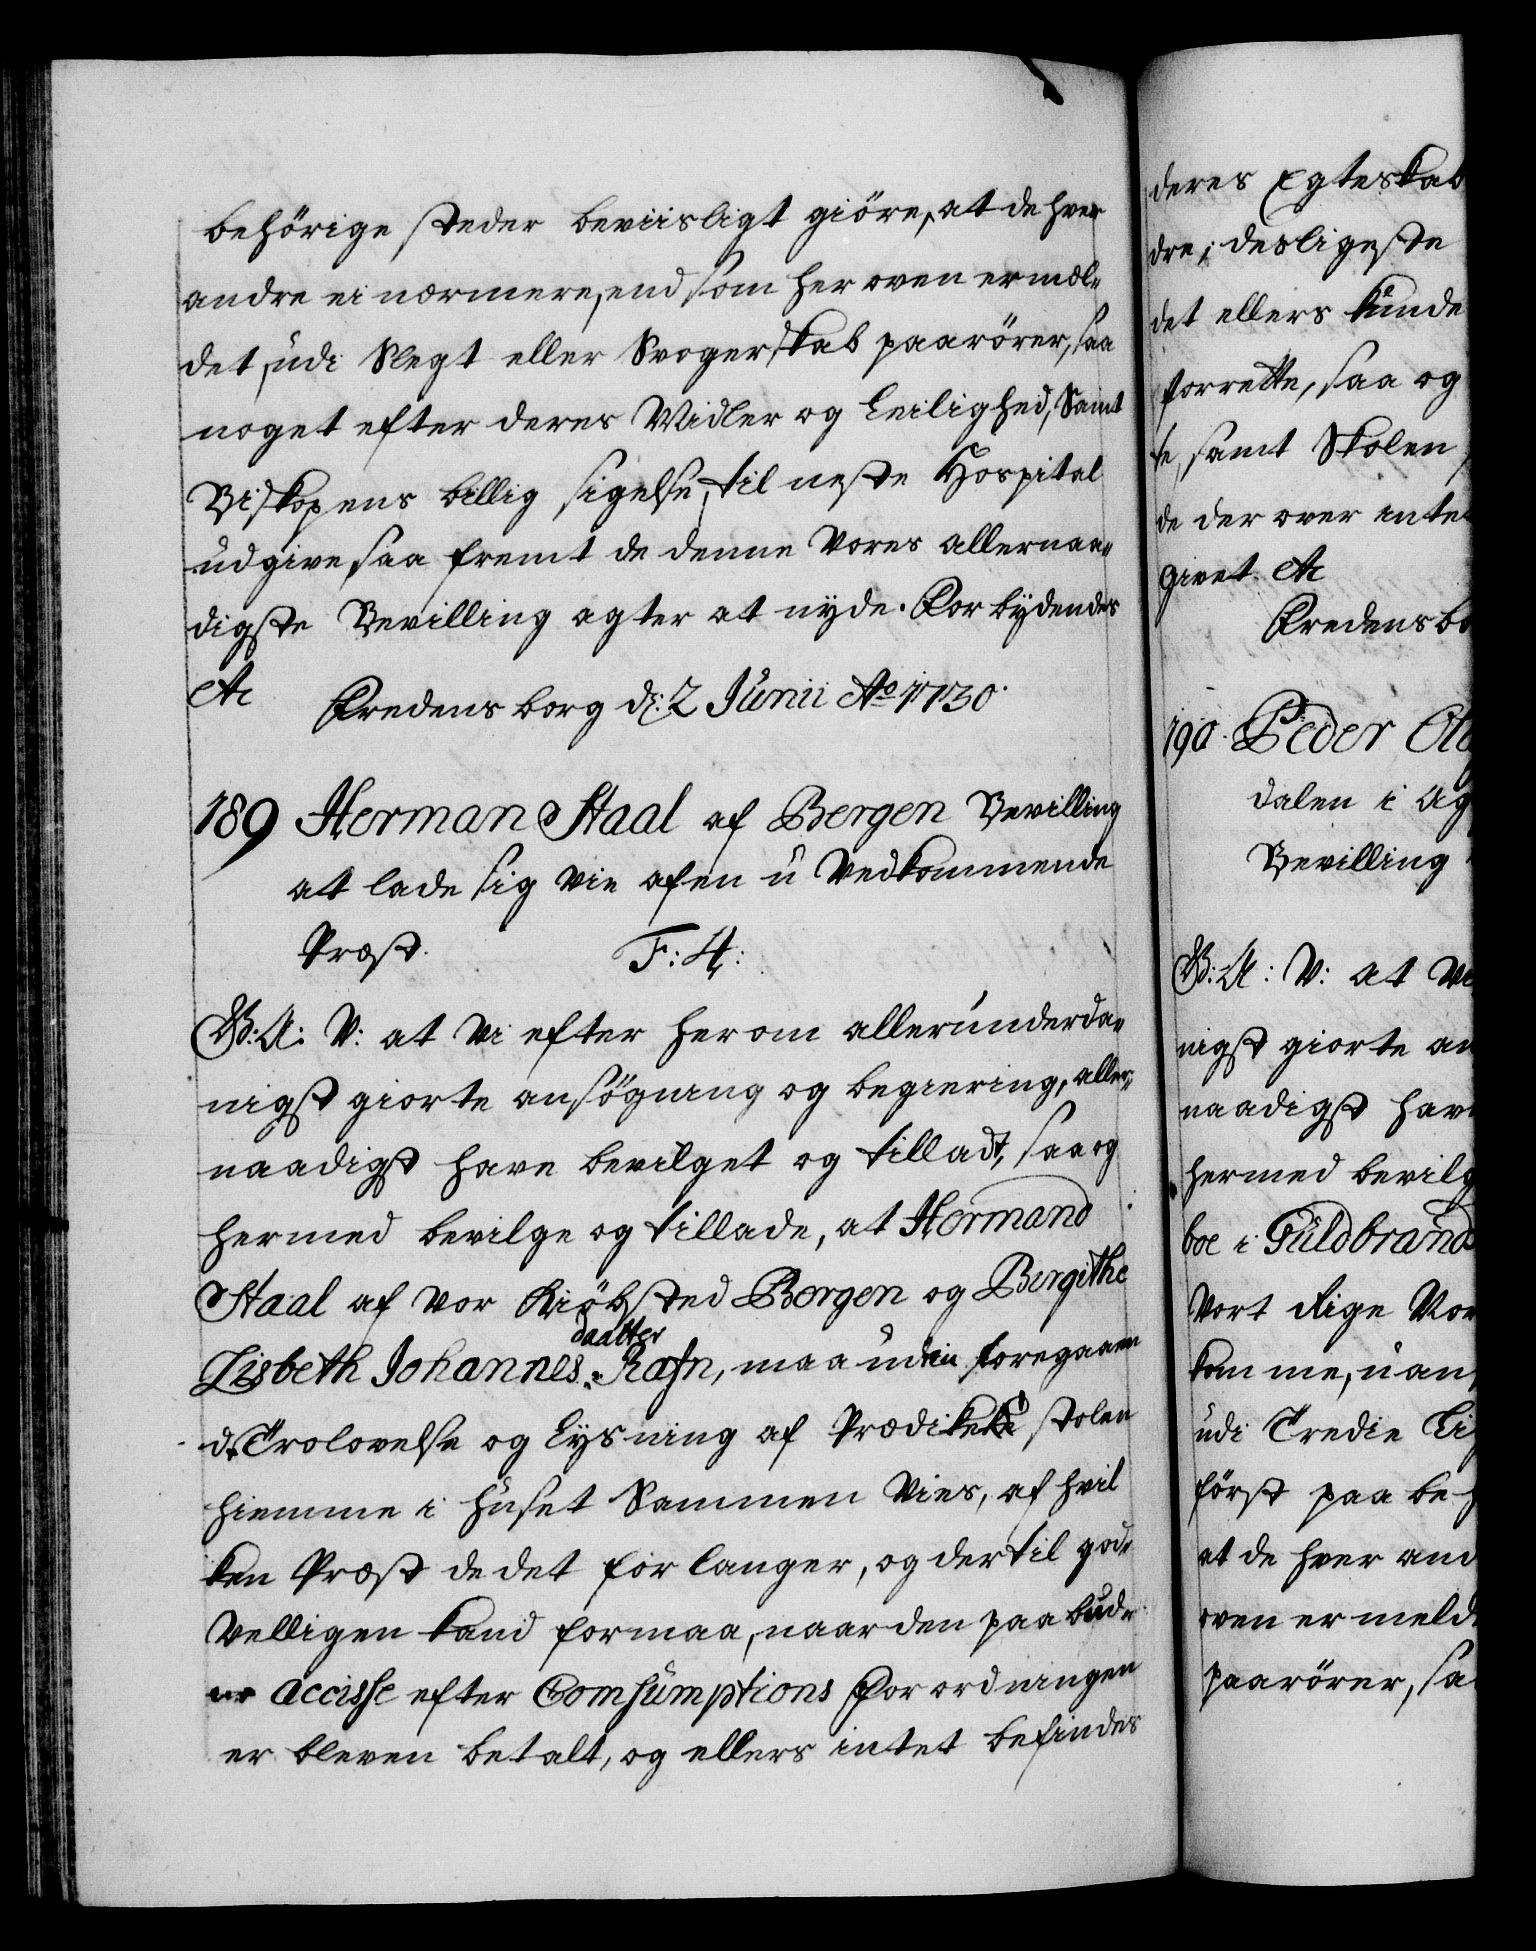 behörige steder beviisligt giöre, at de hver
andre ei nærmere, end som her oven ermel-
det, udi Slegt eller Svogerskab paarörer, saa
noget efter deres Midler og Leilighed, Samt
Biskopens billig sigelse, til neste Hospital
udgive, saa fremt de denne Vores allernaa-
digste Bevilling agter at nyde. Forbydendes
etc
Fredensborg d: 2 Junii Ao 1730.
189 Herman Staal af Bergen Bevilling
at lade sig vie af en u Vedkommende
Præst. F: 4:
G: A: V: at Vi efter herom allerunderda-
nigst giorte ansögning og begiering, aller-
naadigst have bevilget og tilladt, saa og
hermed bevilge og tillade, at Hermand
Staal af vor Kiöbsted Bergen og Birgithe
daatter
Lisbeth Johannes Rafn, maa uden foregaaen
d. Trolovelse og Lysning af Prædike stolen
hiemme i huset Sammen Vies, af hvil
ken Præst de det forlanger, og dertil god-
Velligen kand formaa, naar den paabud-
ne Accisse efter Comsumptions Forordningen
er bleven betalt, og ellers intet befindes
deres Egteskab
dre; desligeste
det ellers kunde
forrette, saa og
te, samt Skolen
de der over inte
givet. etc
Fredensbo
190. Peder Ol
dalen i Ag
Bevilling
G: A: V: at Vi
nigst giorte an
naadigst hav
hermed bevilg
boe i Guldbrand
Vort Rige Nor
komme, uan
udi Tredie Li
först paa beh
at de hver and
oven er meld
paarörer, sa